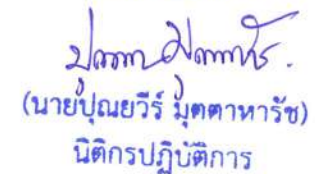 (นายปุณยวีร์ มุตตาหารัช)
นิติกรปฏิบัติการ